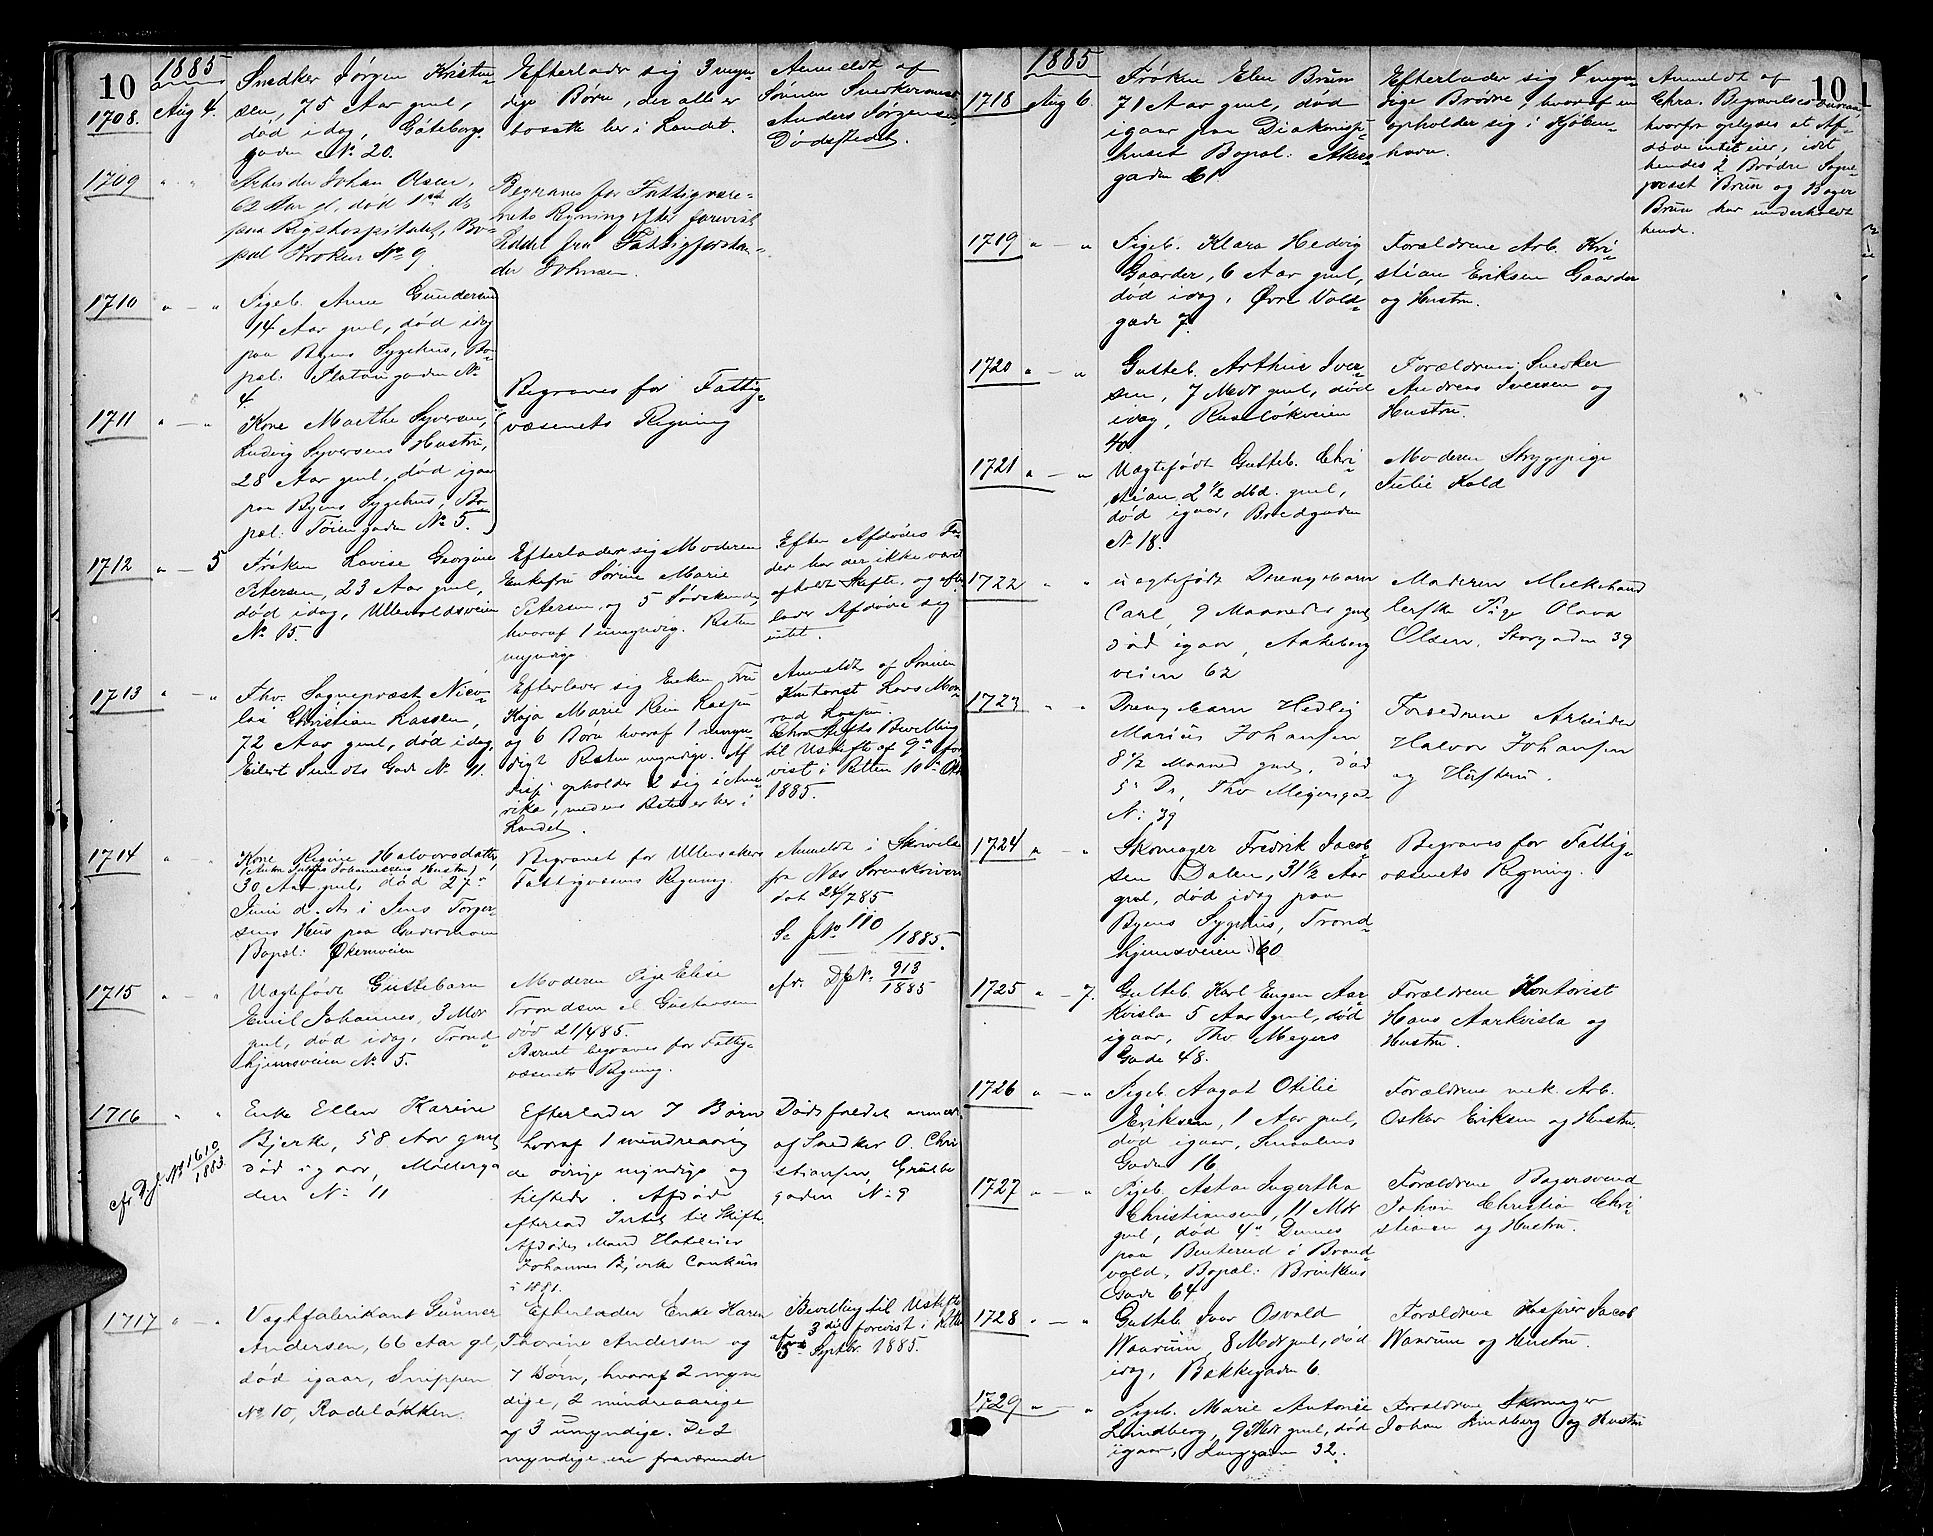 10
1885
1708.
Aug 4.
Snedker Jørgen Kristen-
sen, 75 Aar gml,
død idag, Göteborg-
gaden No 20.
Efterlader sig 3 myn-
dige Børn, der alle er
bosatte her i Landet.
Anmeldt af
Sønnen Snedkersvend
Anders Jørgensen
Dødsstedet.
1709
" "
Arbeider Johan Olsen,
62 Aar gl, død 1ste ds
paa Rigshospitalet, Bo-
pæl Kroken No 9
Begraves for Fattigvæse-
nets Regning efter forevist
Seddel fra Fattigforstan-
der Johnsen.
1710
" — "
Pigeb. Anne Gundersen
14 Aar gml, død idag
paa Byens Sygehus, Bo-
pæl: Platougaden No
4.
1711
" — "
Kone Marthe Syversen,
Ludvig Syversens Hustru,
28 Aar gml, død igaar
paa Byens Sygehus, Bo-
pæl: Tøiengaden No 5.
Begraves for Fattig-
væsenets Regning
1712
" — 5
Frøken Lovise Georgine
Petersen, 23 Aar gml,
død idag, Ullevoldsveien
No 15.
Efterlader sig Moderen
Enkefru Sørine Marie
Petersen og 5 Søskende,
hvoraf 1 umyndig. Resten
myndige.
Efter Afdødes Fa-
der har der ikke været
afholdt Skifte, og efter-
lader Afdøde sig
intet.
1713
" — "
Fhv. Sognepræst Nico-
lai Christian Lassen,
72 Aar gml, død idag,
Eilert Sundts Gade No 11.
Efterlader sig Enken Fru
Kaja Marie Rein Lassen
og 6 Børn hvoraf 1 umyn-
digt Resten myndige. Af
disse opholder 2 sig i Ame-
rika, medens Resten er her i
Landet.
Anmeldt af Sønnen
Kontorist Lars
Lassen.
Chra Stifts Bevilling
til Uskifte af 9de fore-
vist i Retten 10de Okt
1885.
1714
" "
Kone Regine Halvorsdatter,
(Anton Julius Johannessens Hustru),
30 Aar gml, død 27de
Juni d. A. i Jens Torger-
sens Hus paa
Bopæl: Økernveien
Begravet for Ullensakers
Fattigvæsens Regning.
Anmeldt i Skrivelse
fra Næs Sorenskriveri
dat 24/7 85
Se JNo 110/1885.
cfr. DfNo. 913/1885
1715
" — "
Uægtefødt Guttebarn
Emil Johannes, 3 Mdr
gml, død idag, Trond-
hjemsveien No 5.
Moderen Pige Elise
Trondsen el Gustavsen
død 21/4 85.
Barnet begraves for Fattig-
væsenets Regning.
1716
" "
cfr Dgl. No 1610/1883
Enke Ellen Karine
Bjerke, 58 Aar gml
død igaar, Møllerga-
den No 11
Efterlader 7 Børn
hvoraf 1 mindreaarig
de øvrige myndige og
tilstede. Afdøde
efterlod Intet til Skifte.
Afdødes Mand
Johannes Bjerke Conkurs
i 1881.
Dødsfaldet anmeldt
af Snedker O. Chri-
stiansen, Grübbe
gaden No 9
1717
" — "
Vægtfabrikant Gunner
Andersen, 66 Aar gl,
død igaar, Snippen
No 10, Rodeløkken.
Efterlader Enke Karen
Thorine Andersen og
7 Børn, hvoraf 2 myn
dige, 2 mindreaarige
og 3 umyndige. De 2
myndige ere fraværende
Bevilling til Uskifte
af 3die forevist i Retten
5te Septbr. 1885.
10
1885
1718
Aug 6.
Frøken Elen Brun
71 Aar gml, død
igaar paa Diakonisse-
huset Bopæl: Akers-
gaden 61
Efterlader sig 4 myn-
dige Brødre, hvoraf en
opholder sig i Kjøben-
havn.
Anmeldt af
Chra. Begravelsesbureau,
hvorfra oplyses at Af-
døde intet eier, idet
hendes 2 Brødre Sogne-
præst Brun og Bager
Brun har underholdt
hende.
1719
" — "
Pigeb. Klara Hedvig
Gaarder, 6 Aar gml,
død idag, Øvre Vold-
gade 7.
Forældrene Arb. Kri-
stian Eriksen Gaarder
og Hustru.
1720
" — "
Gutteb. Arthur Iver-
sen, 7 Mdr gml, død
idag, Ruseløkveien
40
Forældrene: Snedker
Andreas Iversen og
Hustru.
1721
" — "
Uægtefødt Gutteb. Chri-
stian 2 1/2 Md. gml,
død igaar, Bredgaden
No 18.
Moderen Strygepige
Julie Kold
1722
" "
uægtefødt Drengebarn
Carl, 9 Maaneder gml
død igaar, Aakeberg
veien 62
Moderen Melkehand
lerske Pige Olava
Olsen, Storgaden 39
1723
" "
Drengebarn Hedley
Marius Johansen
8 1/2 Maaned gml, død
5' Ds, Thv Meyersgad-
No 39
Forældrene Arbeider
Halvor Johansen
og Hustru.
1724
" — "
Skomager Fredrik Jacob-
sen Dalen, 31 1/2 Aar
gml, død idag paa
Byens Sygehus, Trond-
hjemsveien 60
Begraves for Fattig-
væsenets Regning.
1725
" — 7.
Gutteb. Karl Eugen Aar-
kvisla 5 Aar gml, død
igaar, Thv Meyers
Gade 48.
Forældrene Kontorist
Hans Aarkvisla og
Hustru.
1726
" — "
Pigeb. Aagot Otilie
Eriksen, 1 Aar gml,
død igaar, Smaalens
Gaden 16
Forældrene mek. Arb.
Oskar Eriksen og Hustru.
1727
" — "
Pigeb. Asta Ingertha
Christiansen, 11 Mdr
gml, død 4de Dennes
paa Benterud i Brand-
vold, Bopæl: Brinkens
Gade 64
Forældrene Bagersvend
Johan Christian Chri-
stiansen og Hustru.
1728
" — "
Gutteb Ivar Osvald
Waarum, 8 Mdr gml, død
idag, Bakkegaden 6.
Forældrene Kasper Jacob
Waarum og Hustru.
1729
" — "
Pigeb. Marie Antonie
Lindberg, 9 Mdr gml, død
igaar, Langgaden 32.
Forældrene Skomager
Johan Lindberg og Hustru